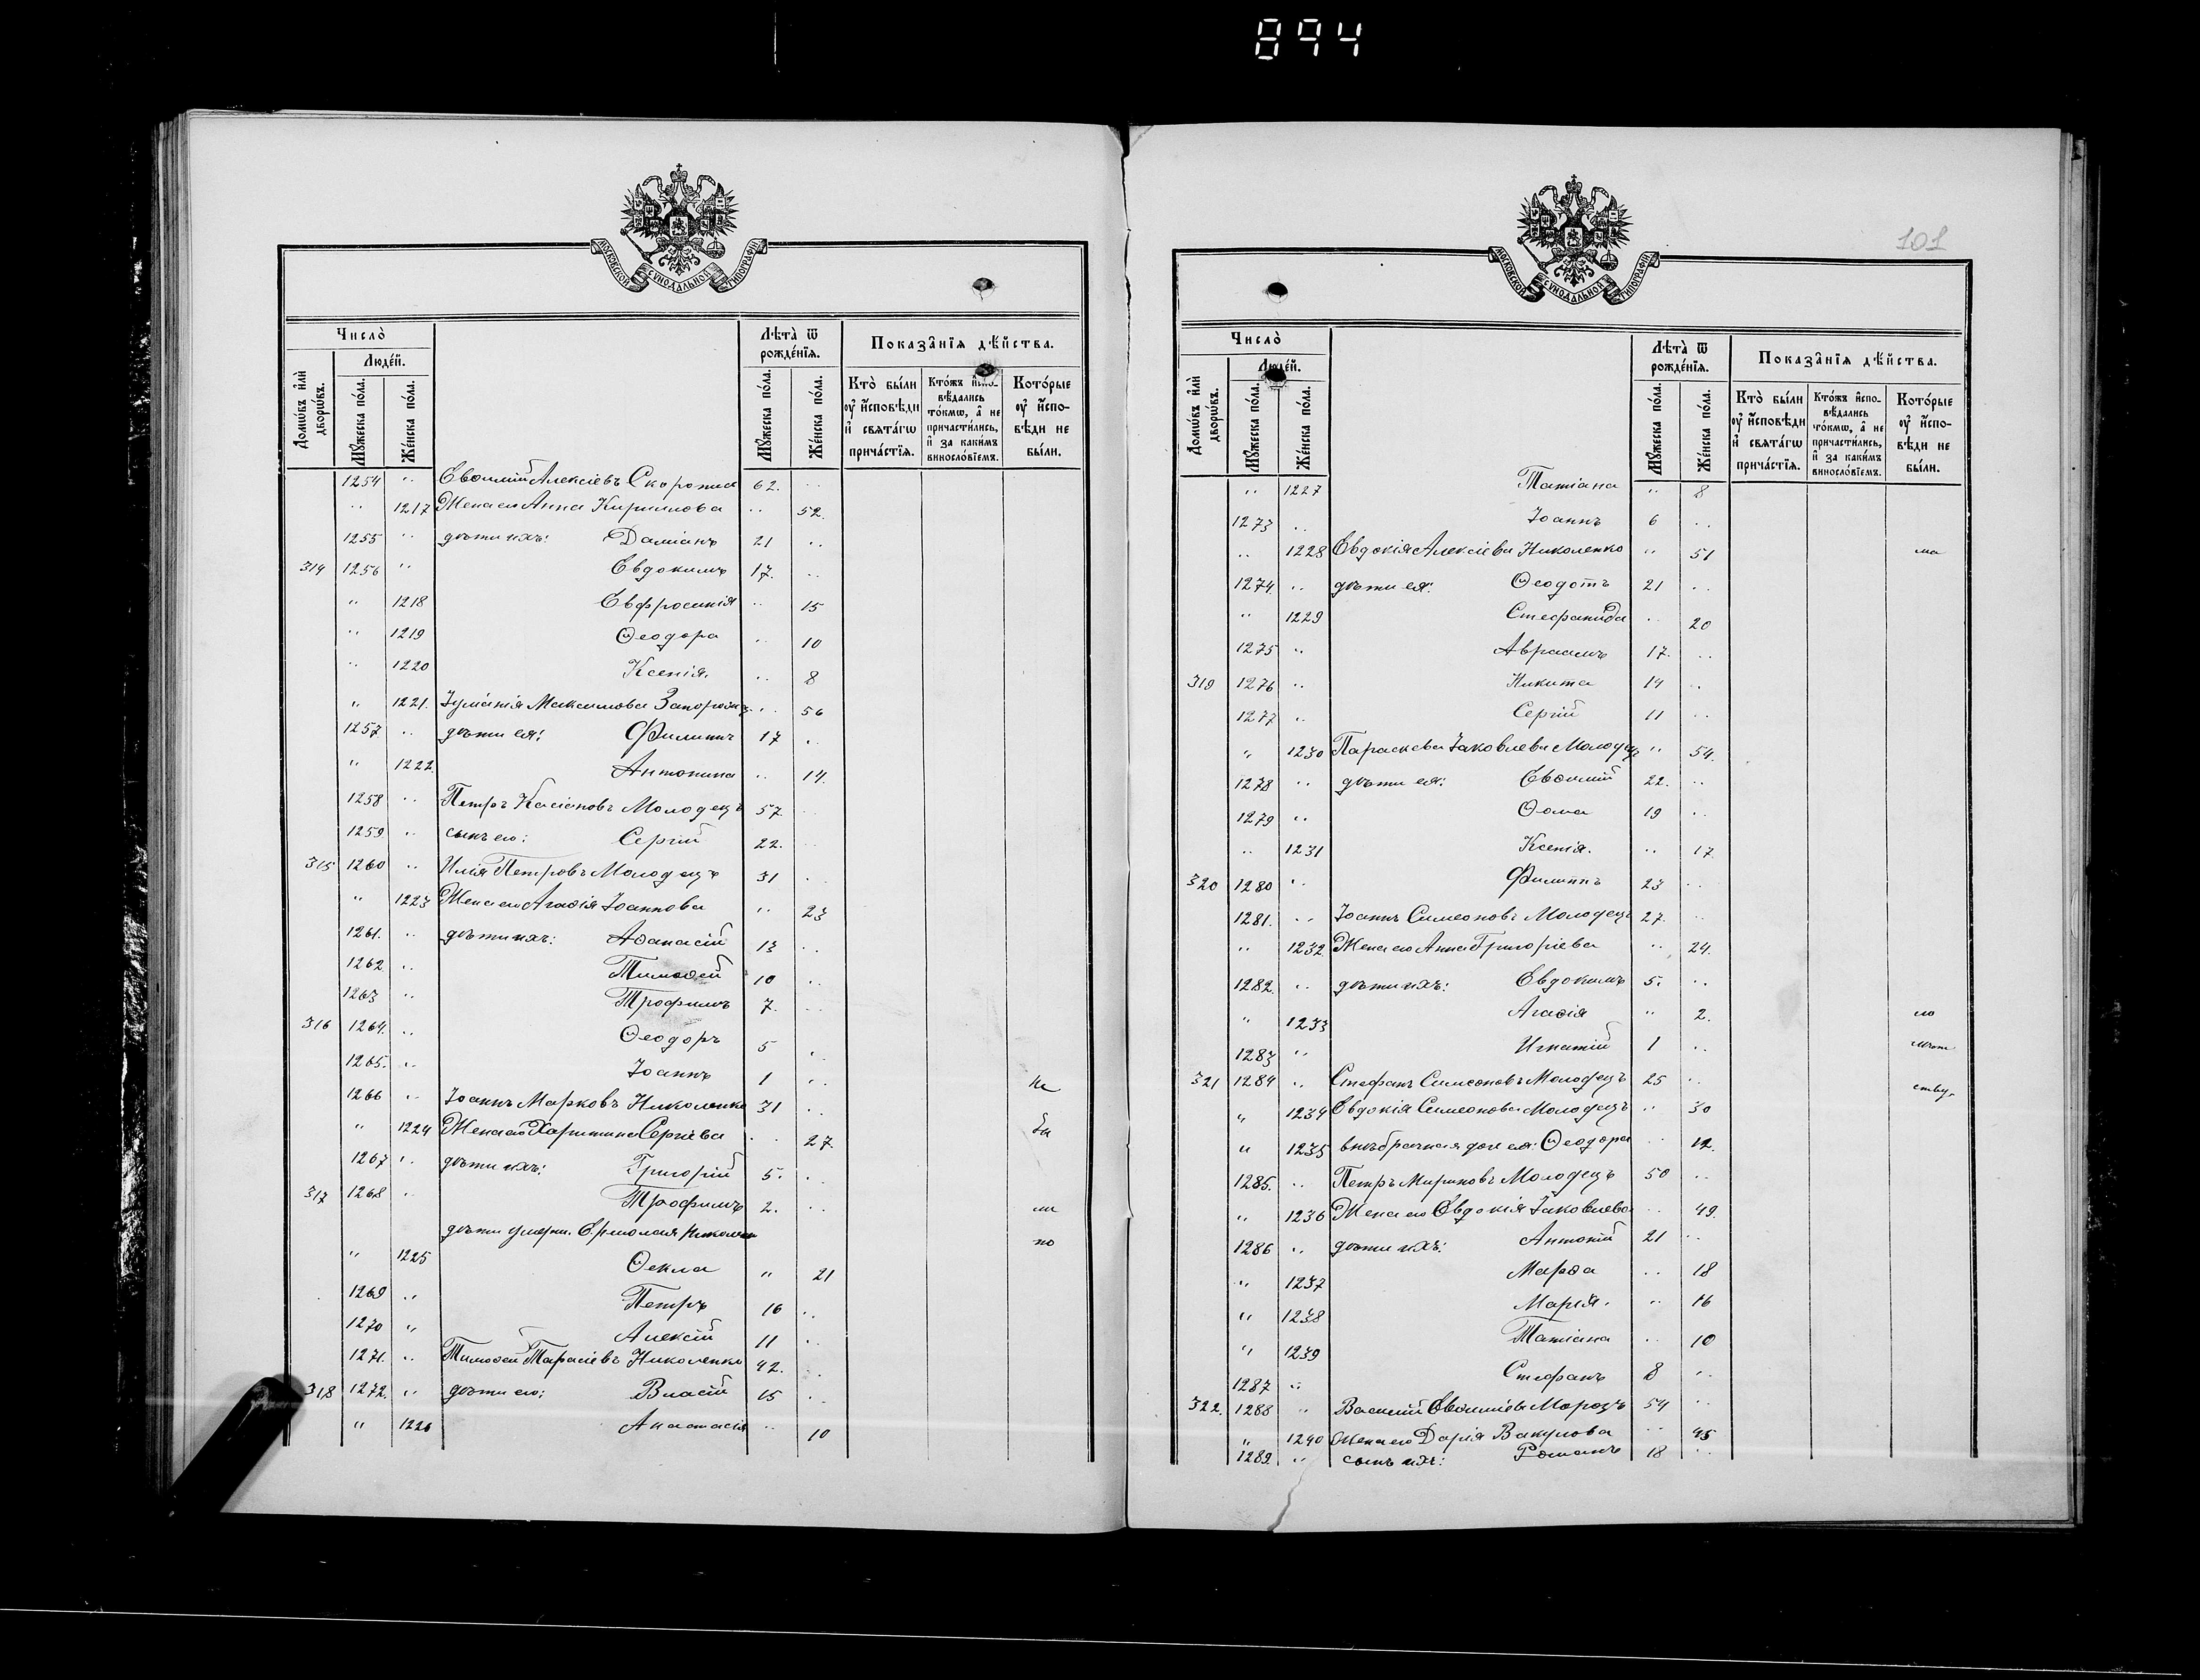 894
МОСКОВСКОЙ СѴНОДАЛЬНОЙ ТИПОГРАФІИ
Число̀
Домѡ́въ и҆лѝ дворѡ́въ.
Люде́й.
Мꙋ́жеска по́ла.
Же́нска по́ла.
Лѣта̀ ѿ рожде́нїѧ.
Мꙋ́жеска по́ла.
Же́нска по́ла.
Показа̑нїѧ дѣ́йства.
Кто̀ бы́ли ᲂу҆ и҆́сповѣди и҆ свѧта́гѡ прича́стїѧ.
Кто́жъ и҆спо-вѣдались то́кмѡ, а҆ не причасти́лись, и҆ за каки́мъ винослѡ́вїемъ.
Кото́рые ᲂу҆ и҆́спо-вѣди не бы́ли.
1254 " Евѳимій Алексіевъ Скоропис 62. "
" 1217 Жена его Анна Кириллова " 52.
1255 " дѣти ихъ: Даміанъ 21 "
314 1256 " Евдокимъ 17. "
" 1218 Евфросинія " 15
" 1219 Ѳеодора " 10
" 1220 Ксенія. " 8
" 1221. Іуліанія Максимова Запорож " 56
1257 " дѣти ея: Филиппъ 17 "
" 1222. Антонина " 14.
1258 " Петръ Касіановъ Молодецъ 57. "
1259 " сынъ его: Сергій 22. "
315 1260 " Илія Петровъ Молодецъ 31 "
" 1223 Жена его Агаѳія Іоаннова " 23
1261. " дѣти ихъ: Аѳанасій 13 "
1262 " Тимоѳей 10 "
1263 " Трофимъ 7. "
316 1264. " Ѳеодоръ 5 "
1265. " Іоаннъ 1 "
Не
1266 " Іоаннъ Марковъ Николенко 31 "
" 1224 Жена его Харитина Сергіева " 27. бы
1267 " дѣти ихъ: Григорій 5. "
317 1268 " Трофимъ 2. " ли
дѣти умерш. Ермолая Николен по
" 1225 Ѳекла " 21
1269 " Петръ 16 "
1270 " Алексій 11 "
1271. " Тимоѳей Тарасіевъ Николенко 42. "
318 1272. " дѣти его: Власій 15 "
" 1226 Анастасія " 10
101
МОСКОВСКОЙ СѴНОДАЛЬНОЙ ТИПОГРАФІИ
Число̀
Домѡ́въ и҆лѝ дворѡ́въ.
Люде́й.
Мꙋ́жеска по́ла.
Же́нска по́ла.
Лѣта̀ ѿ рожде́нїѧ.
Мꙋ́жеска по́ла.
Же́нска по́ла.
Показа̑нїѧ дѣ́йства.
Кто̀ бы́ли ᲂу҆ и҆́сповѣди и҆ свѧта́гѡ прича́стїѧ.
Кто́жъ и҆спо-вѣдались то́кмѡ, а҆ не причасти́лись, и҆ за каки́мъ винослѡ́вїемъ.
Кото́рые ᲂу҆ и҆́спо-вѣди не бы́ли.
" 1227 Татіана " 8
1273 " Іоаннъ 6 "
" 1228 Евдокія Алексіева Николенко " 51 ма
1274. " дѣти ея: Ѳеодотъ 21 "
" 1229 Стефанида " 20
1275 " Авраамъ 17. "
319 1276 " Никита 14 "
1277 " Сергій 11 "
" 1230 Параскева Іаковлева Молодец " 54.
1278 " дѣти ея: Евѳимій 22. "
1279 " Ѳома 19 "
" 1231 Ксенія. " 17
320 1280 " Филиппъ 23 "
1281. " Іоаннъ Симеоновъ Молодецъ 27. "
" 1232 Жена его Анна Григоріева " 24.
1282. " дѣти ихъ: Евдокимъ 5. "
" 1233 Агаѳія " 2. ло
1283 " Игнатій 1 " лѣт
321 1284 " Стефанъ Симеоновъ Молодецъ 25 " ству.
" 1234 Евдокія Симеонова Молодецъ " 30
" 1235 внѣбрачная доч ея: Ѳеодора " 12.
1285. " Петръ Мироновъ Молодецъ 50 "
" 1236 Жена его Евдокія Іаковлева " 49.
1286 " дѣти ихъ: Антоній 21 "
" 1237 Марѳа " 18
" 1238 Марія. " 16
" 1239 Татіана " 10
1287 " Стефанъ 8 "
322. 1288 " Василій Евѳиміевъ Морозъ 54 "
" 1240 Жена его Дарія Вакулова " 45
1289. " сынъ ихъ: Романъ 18 "